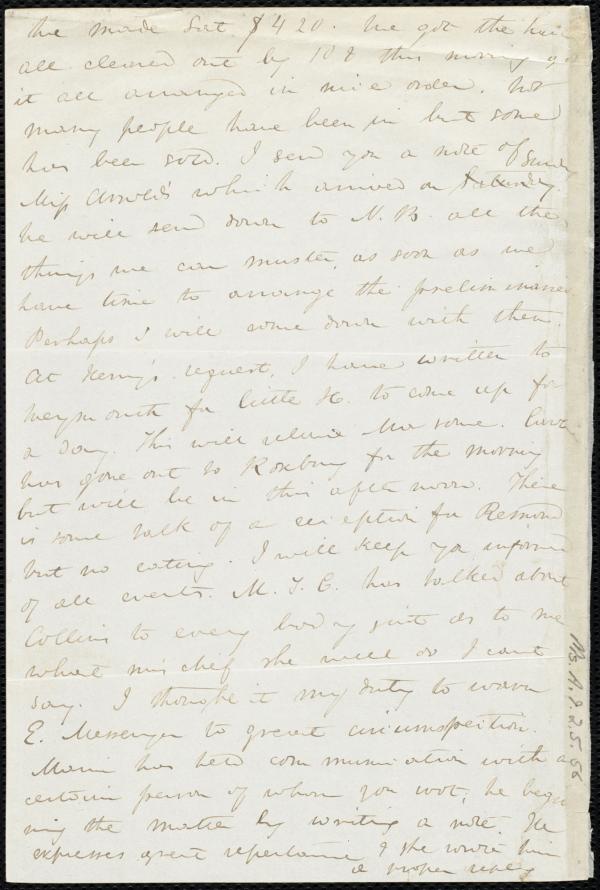 We made Sat. $420. We got the hair
all cleared out by 10 & this morning got
it all arranged in nice order. Not
many people have been in but some
has been sold. I send you a note of
Miss Arnold's which arrived on Saturday Sunday.
We will send down to N. B. all the
things we can muster, as soon as we
have time to arrange the preliminaries
Perhaps I will come down with them.
At Henry's request, I have written to
Weymouth for little H. to come up for
a day. This will relieve Ma some.
has gone out to Roxbury for the morning
but will be in this afternoon. There
is some talk of a reception for Remond
but no eating. I will keep you informed
of all events. M. J. C. has talked about
Collins to every body just as to me
what mischief she will do I cant
say. I thought it my duty to warn
E. Messenger to great circumspection.
has held communication with a
certain person of whom you wot, he begin
ning the matter by writing a note. He
expresses great repentance & she wrote him
a proper reply
Ms.A.9.2.5.56